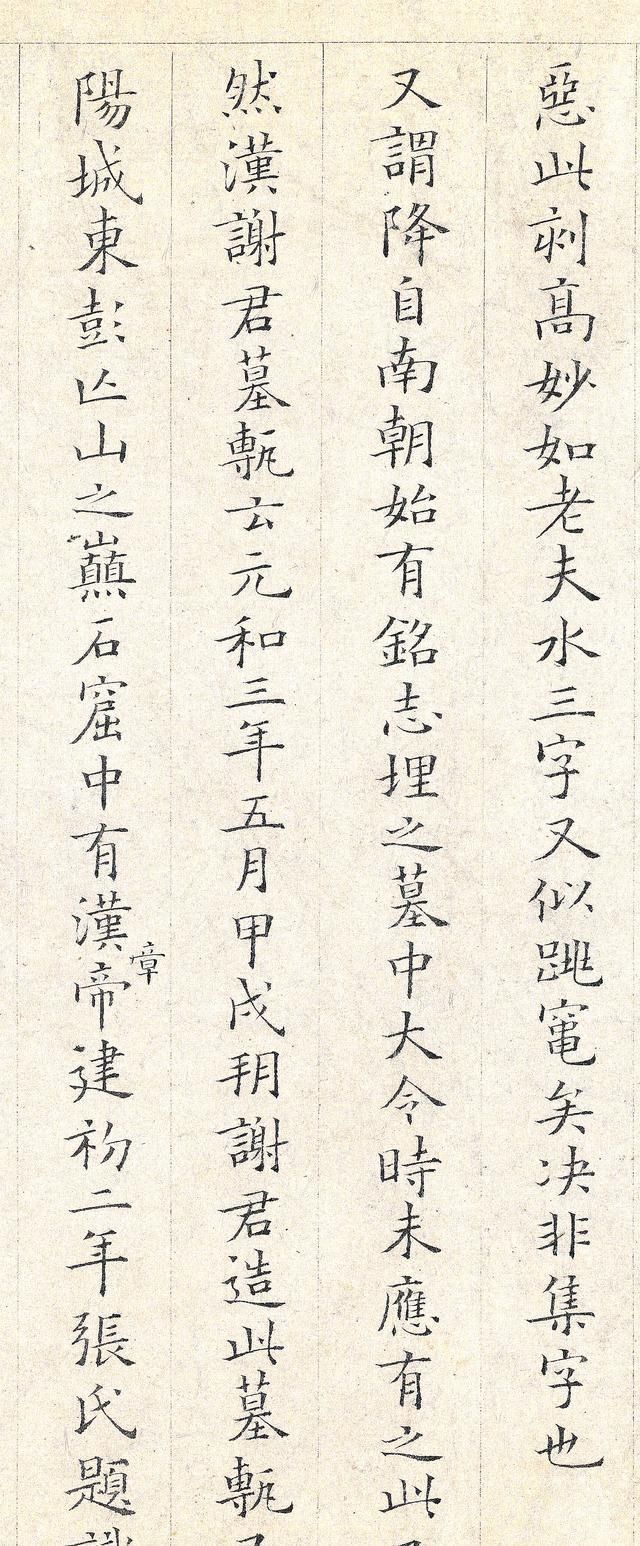 惡此刻高妙如老夫水三字又似跳竄矣决非集字也
又謂降自南朝始有銘志埋之墓中大令時未應有之此
然漢謝君墓甎云元和三年五月甲戌朔謝君造此墓甎
陽城東彭亾山之巔石窟中有漢章帝建初二年張氏題